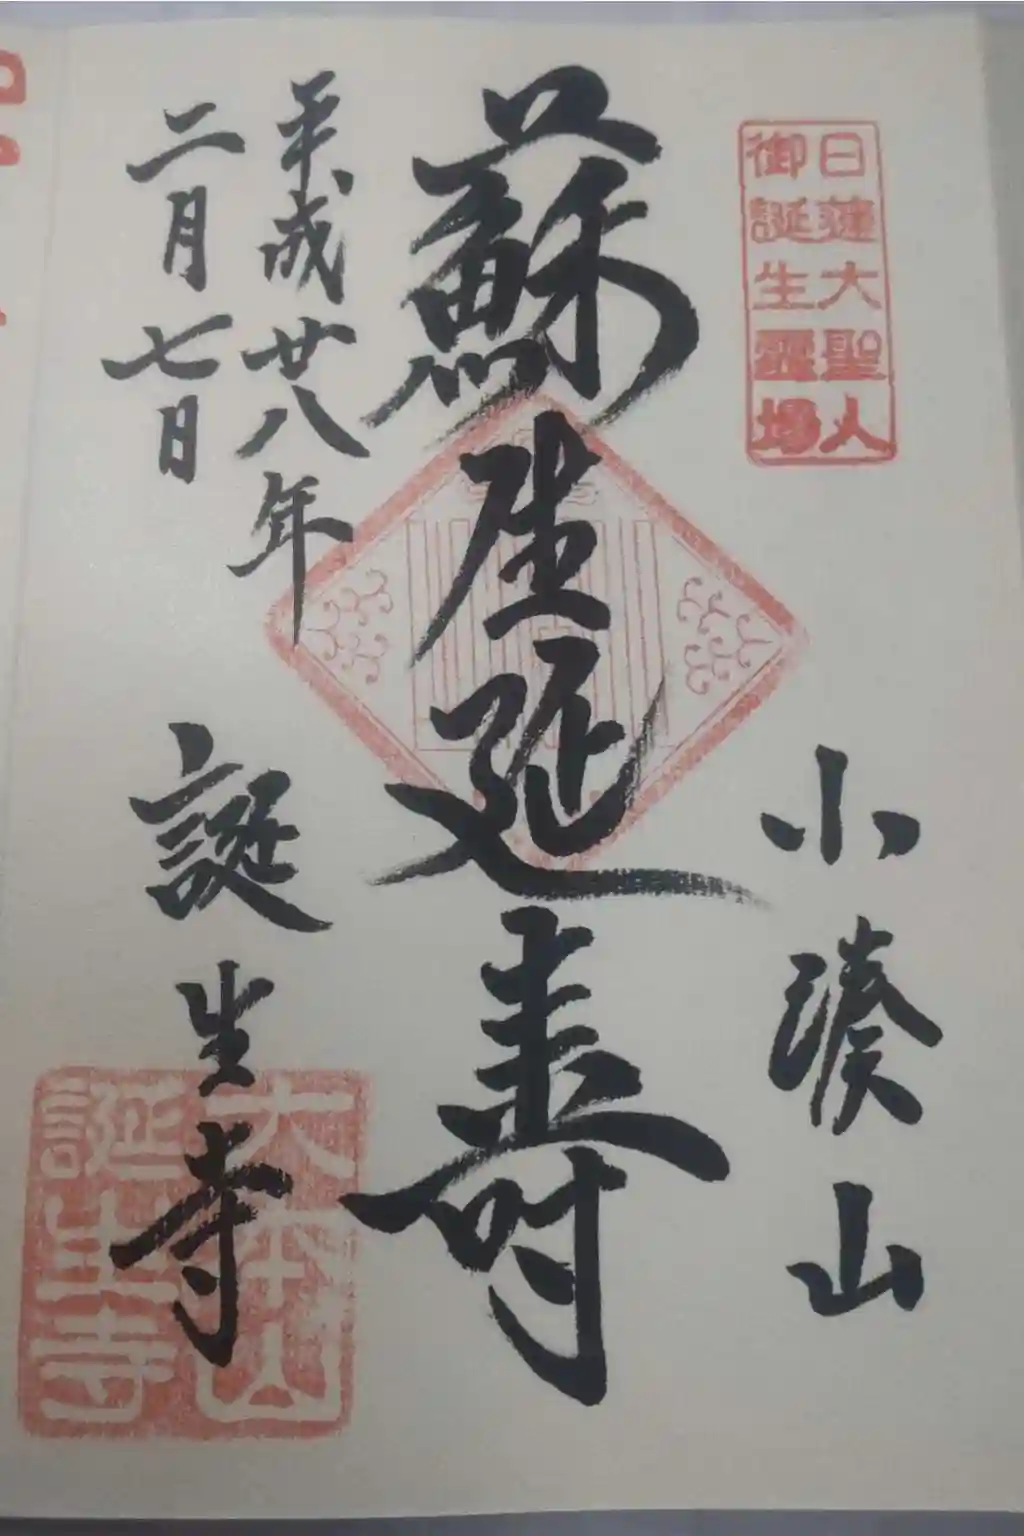 日蓮大聖人
御誕生霊場
小湊山
蘇生延寿
平成廿八年
二月七日
誕生寺
大本山
誕生寺